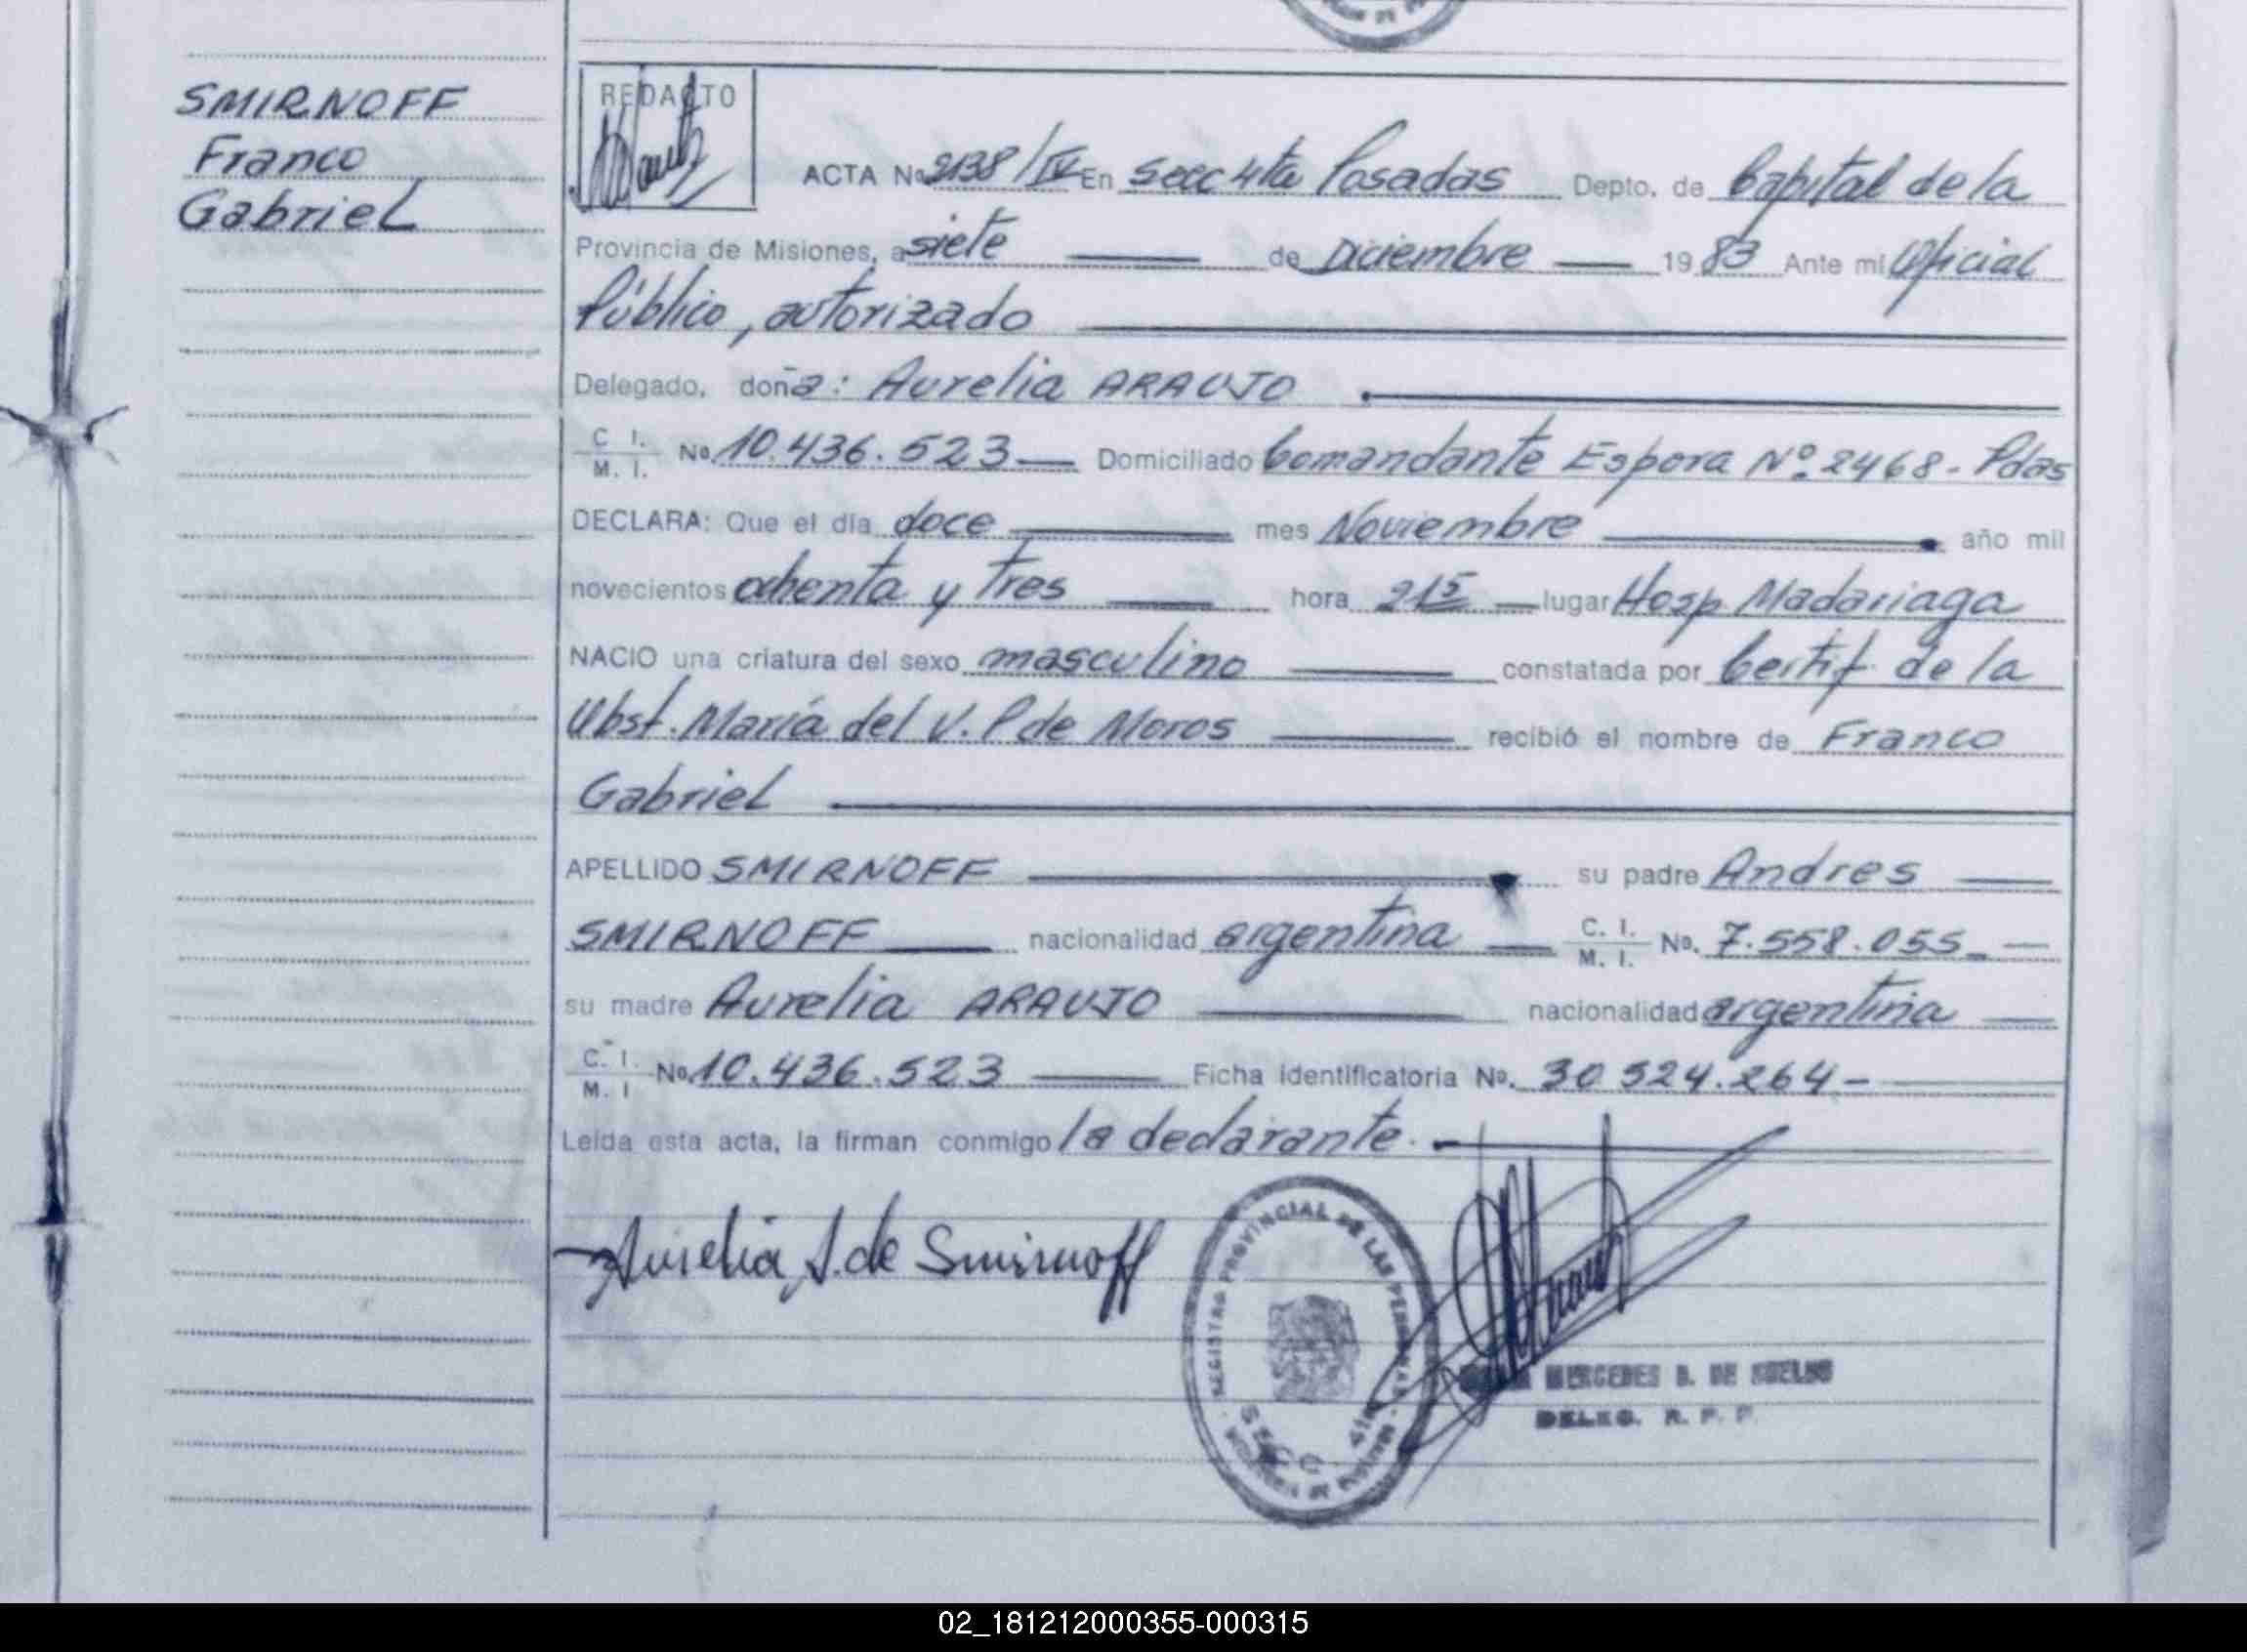 SMIRNOFF
Franco
Gabriel
REDACTO
ACTA No 2138/IV En Secc 4ta Posadas Depto. de Capital de la
Provincia de Misiones, a siete de Diciembre 1983 Ante mi Oficial
Público, autorizado
Delegado, doña: Aurelia ARAUJO.
C I.
M. I. No. 10.436.523 Domiciliado Comandante Espora Nº 2468 - Pdas
DECLARA: Que el día doce mes Noviembre año mil
novecientos ochenta y tres hora 21 5 lugar Hosp Madariaga
NACIO una criatura del sexo masculino constatada por Certif. de la
Obst. María del V. P de Moros recibió el nombre de Franco
Gabriel
APELLIDO SMIRNOFF su padre Andres
SMIRNOFF nacionalidad argentina C. I.
M. I. No. 7.558.055
su madre Aurelia ARAUJO nacionalidad argentina
C. I.
M. I No. 10.436.523 Ficha Identificatoria No. 30 524.264-
Leída esta acta, la firman conmigo la declarante.
Aurelia A. de Smirnoff
REGISTRO PROVINCIAL DE LAS PERSONAS
SECC 4ta
PROVINCIA DE MISIONES
MERCEDES B. DE
DELEG. R. P. P.
02_181212000355-000315